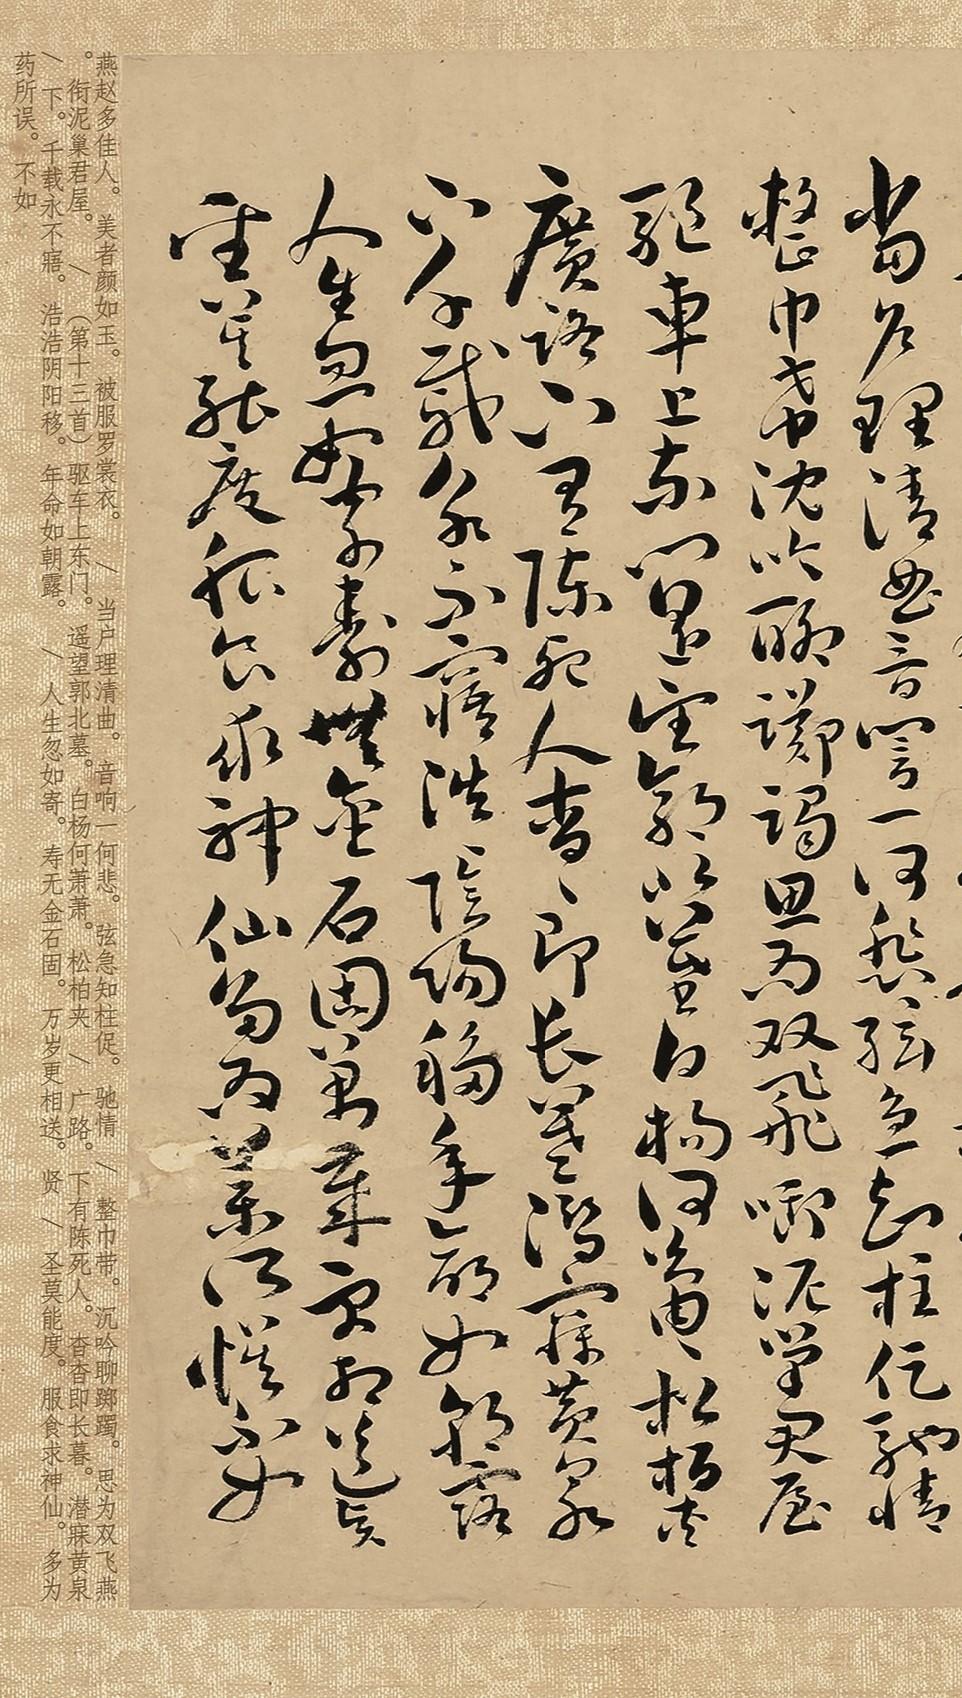 當戶理清曲音響一何悲弦急知柱促馳情
整巾帶沈吟聊躑躅思為双飛啣泥巢君屋
驅車上東門遙望郭北墓白楊何蕭〻松柏夾
廣路下有陳死人杳〻即長暮潛寐黃泉
下千載永不寤浩〻陰陽移年命如朝露
人生忽如寄壽無金石固萬歲更相送賢
聖莫能度服食求神仙多為藥所誤不如
燕赵多佳人。美者颜如玉。被服罗裳衣。/ 当户理清曲。音响一何悲。弦急知柱促。驰情 / 整巾带。沉吟聊踯躅。思为双飞燕
。衔泥巢君屋。/（第十三首）驱车上东门。遥望郭北墓。白杨何萧萧。松柏夹 / 广路。下有陈死人。杳杳即长暮。潜寐黄泉
/ 下。千载永不寤。浩浩阴阳移。年命如朝露。/ 人生忽如寄。寿无金石固。万岁更相送。贤 / 圣莫能度。服食求神仙。多为
药所误。不如